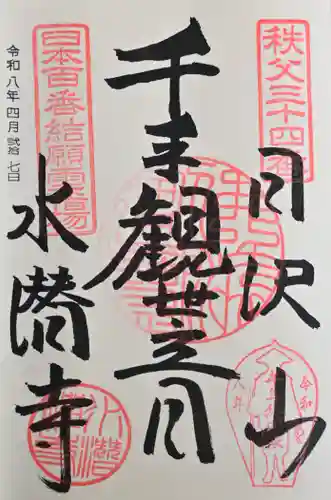 秩父三十四番
日沢山
千手観世音
日本百番結願霊場
水潜寺
令和八年四月弐拾七日